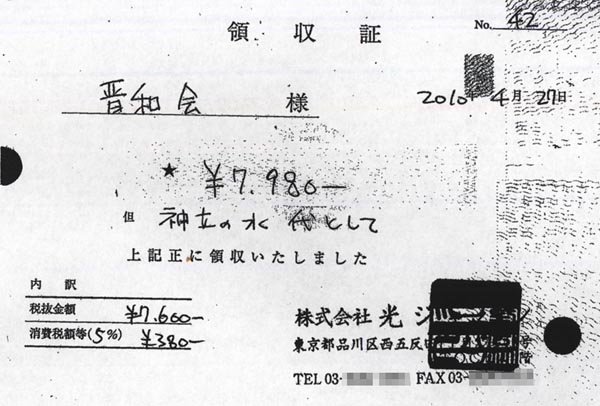 領収証
No. 42
晋和会 様
2010年 4月 27日
★ ¥7.980—
但 神立の水 代として
上記正に領収いたしました
内訳
税抜金額 ¥7.600—
消費税額等(5%) ¥380—
株式会社 光ジ
東京都品川区西五反田 号
階
TEL 03- FAX 03-